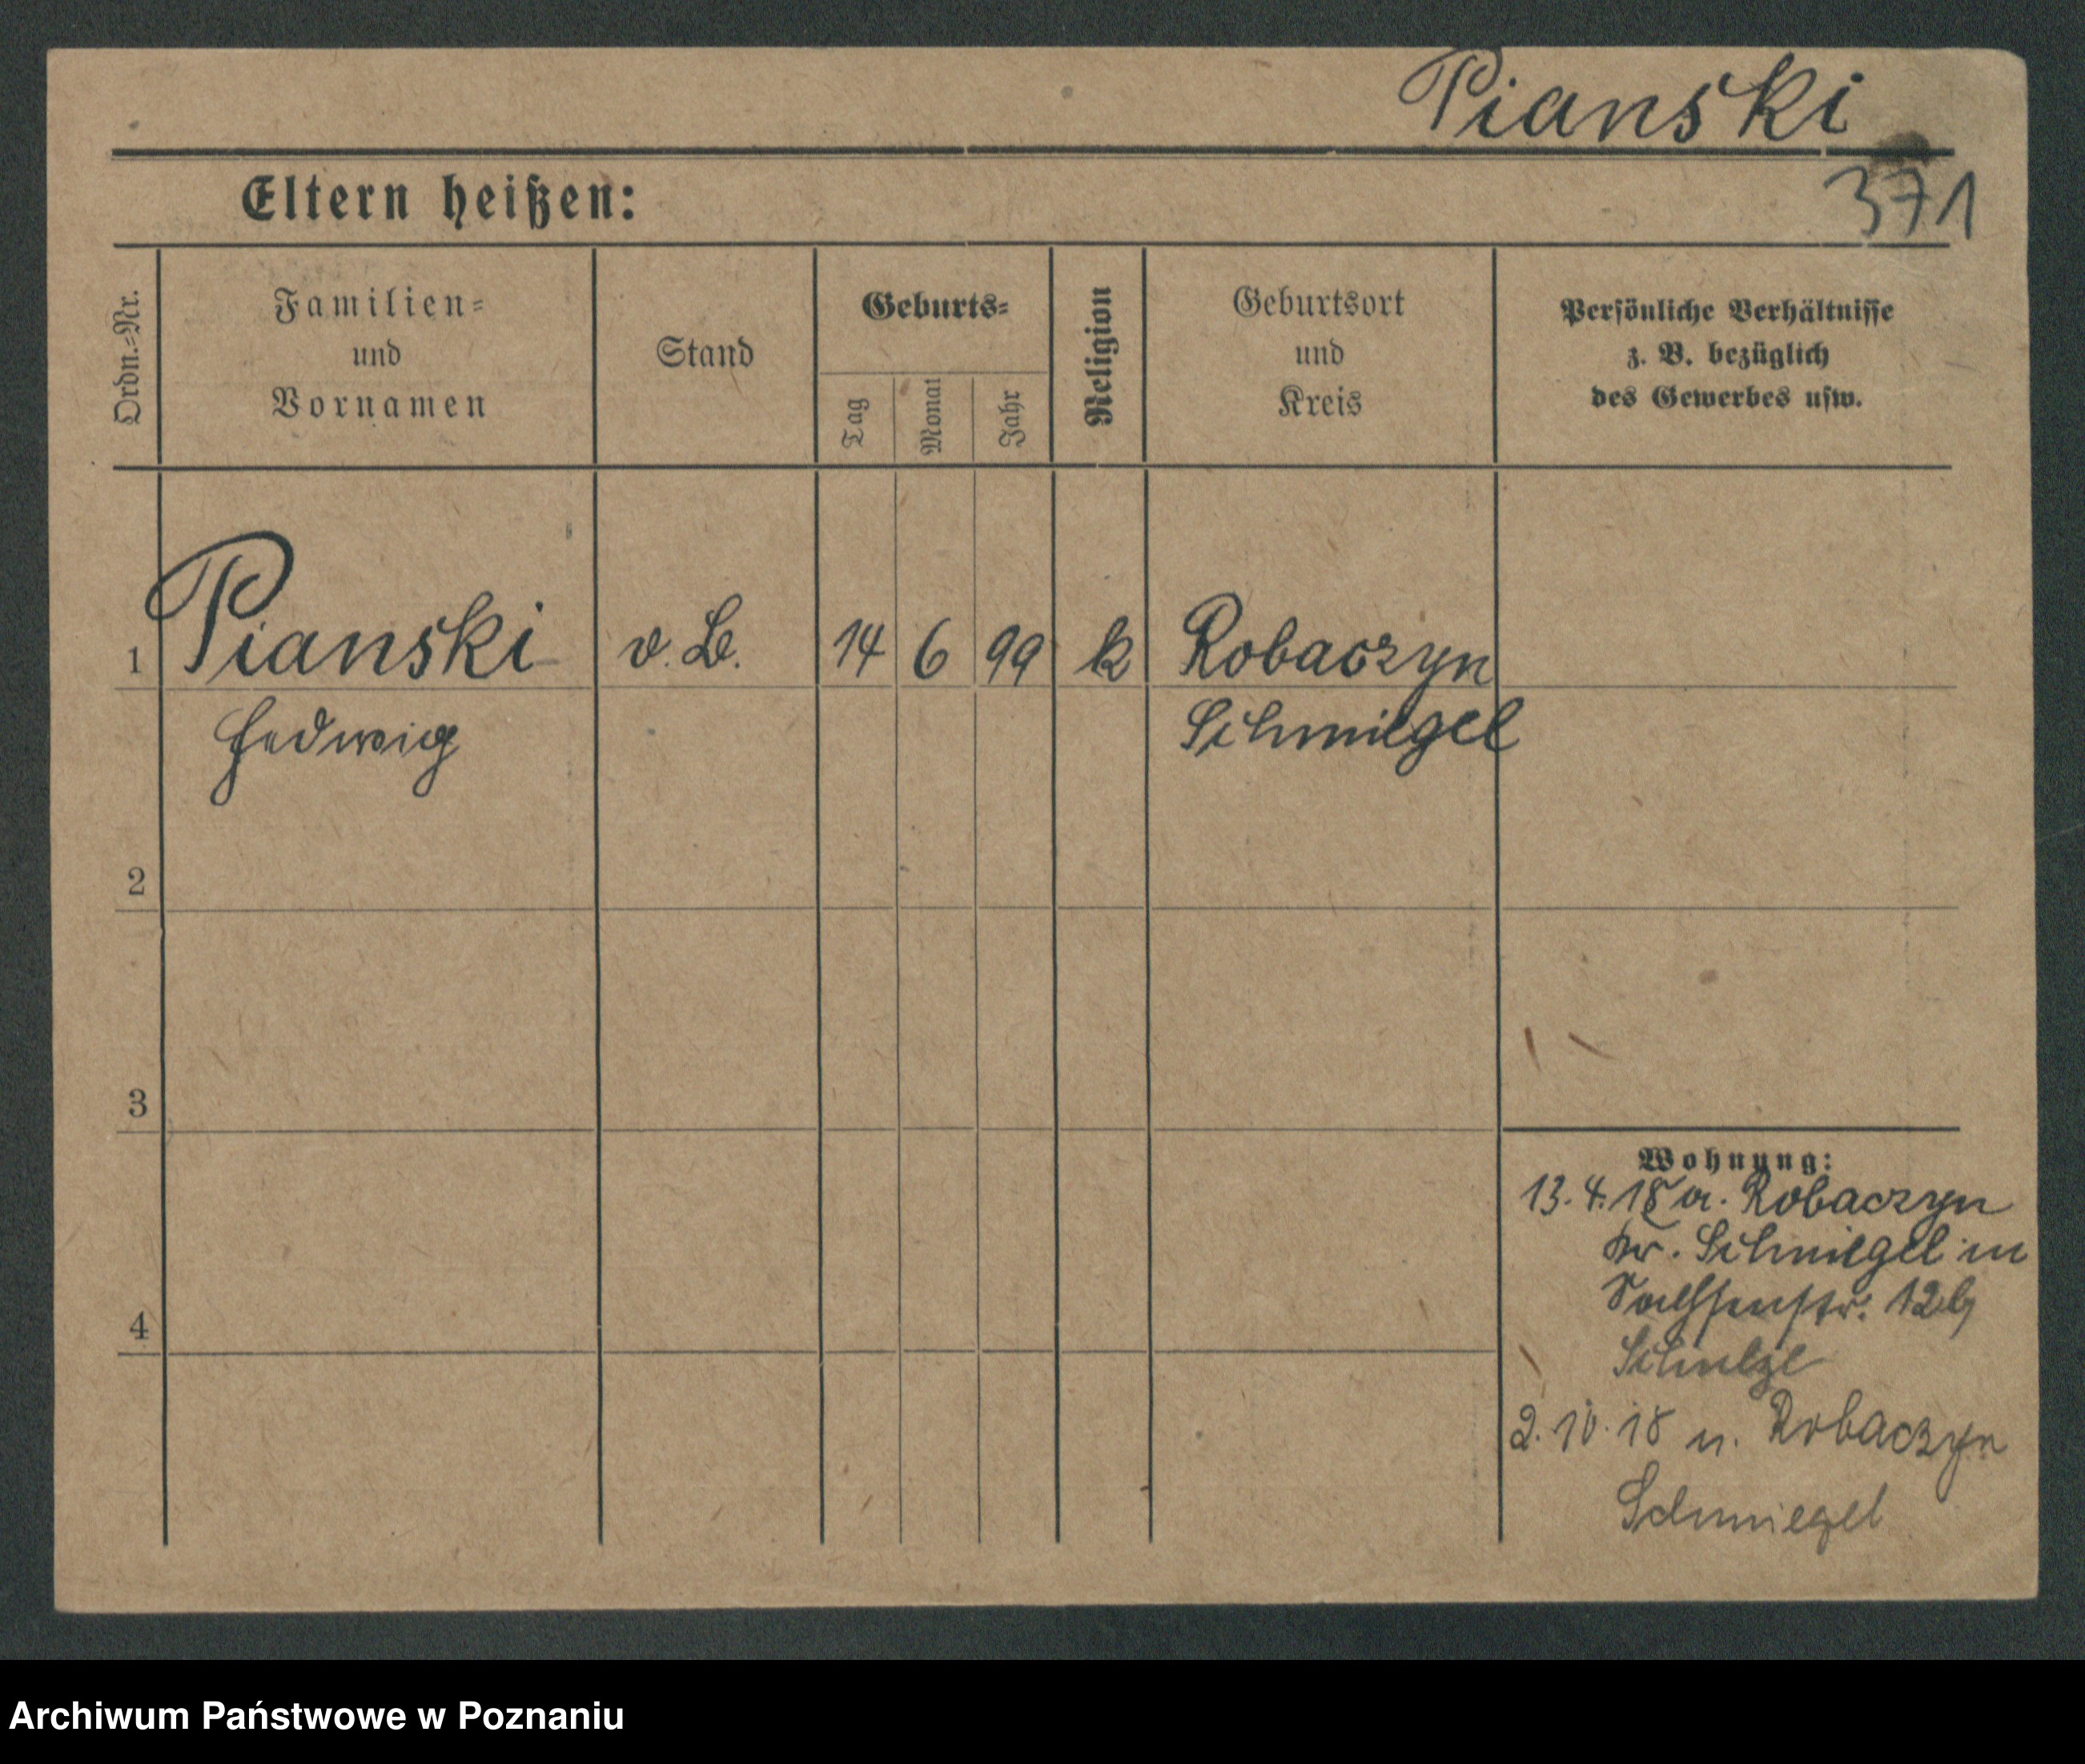 Pianski
371
Eltern heißen:
Ordn.-Nr.
Familien-
und
Vornamen
Stand
Geburts-
Tag
Monat
Jahr
Religion
Geburtsort
und
Kreis
Persönliche Verhältnisse
z. B. bezüglich
des Gewerbes usw.
1 Pianski v. B. 14 6 99 k Robaczyn
Hedwig Schmiegel
2
3
4
Wohnung:
13.4.18 a. Robaczyn
Kr. Schmiegel in
Sachsenstr. 12b
Schulze
2.10.18 n. Robaczyn
Schmiegel
Archiwum Państwowe w Poznaniu